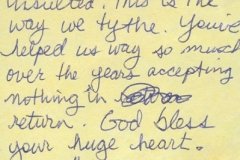 insulted. This is the
way we tythe. You've
helped us way so much
over the years accepting
nothing in
return. God bless
your huge heart.